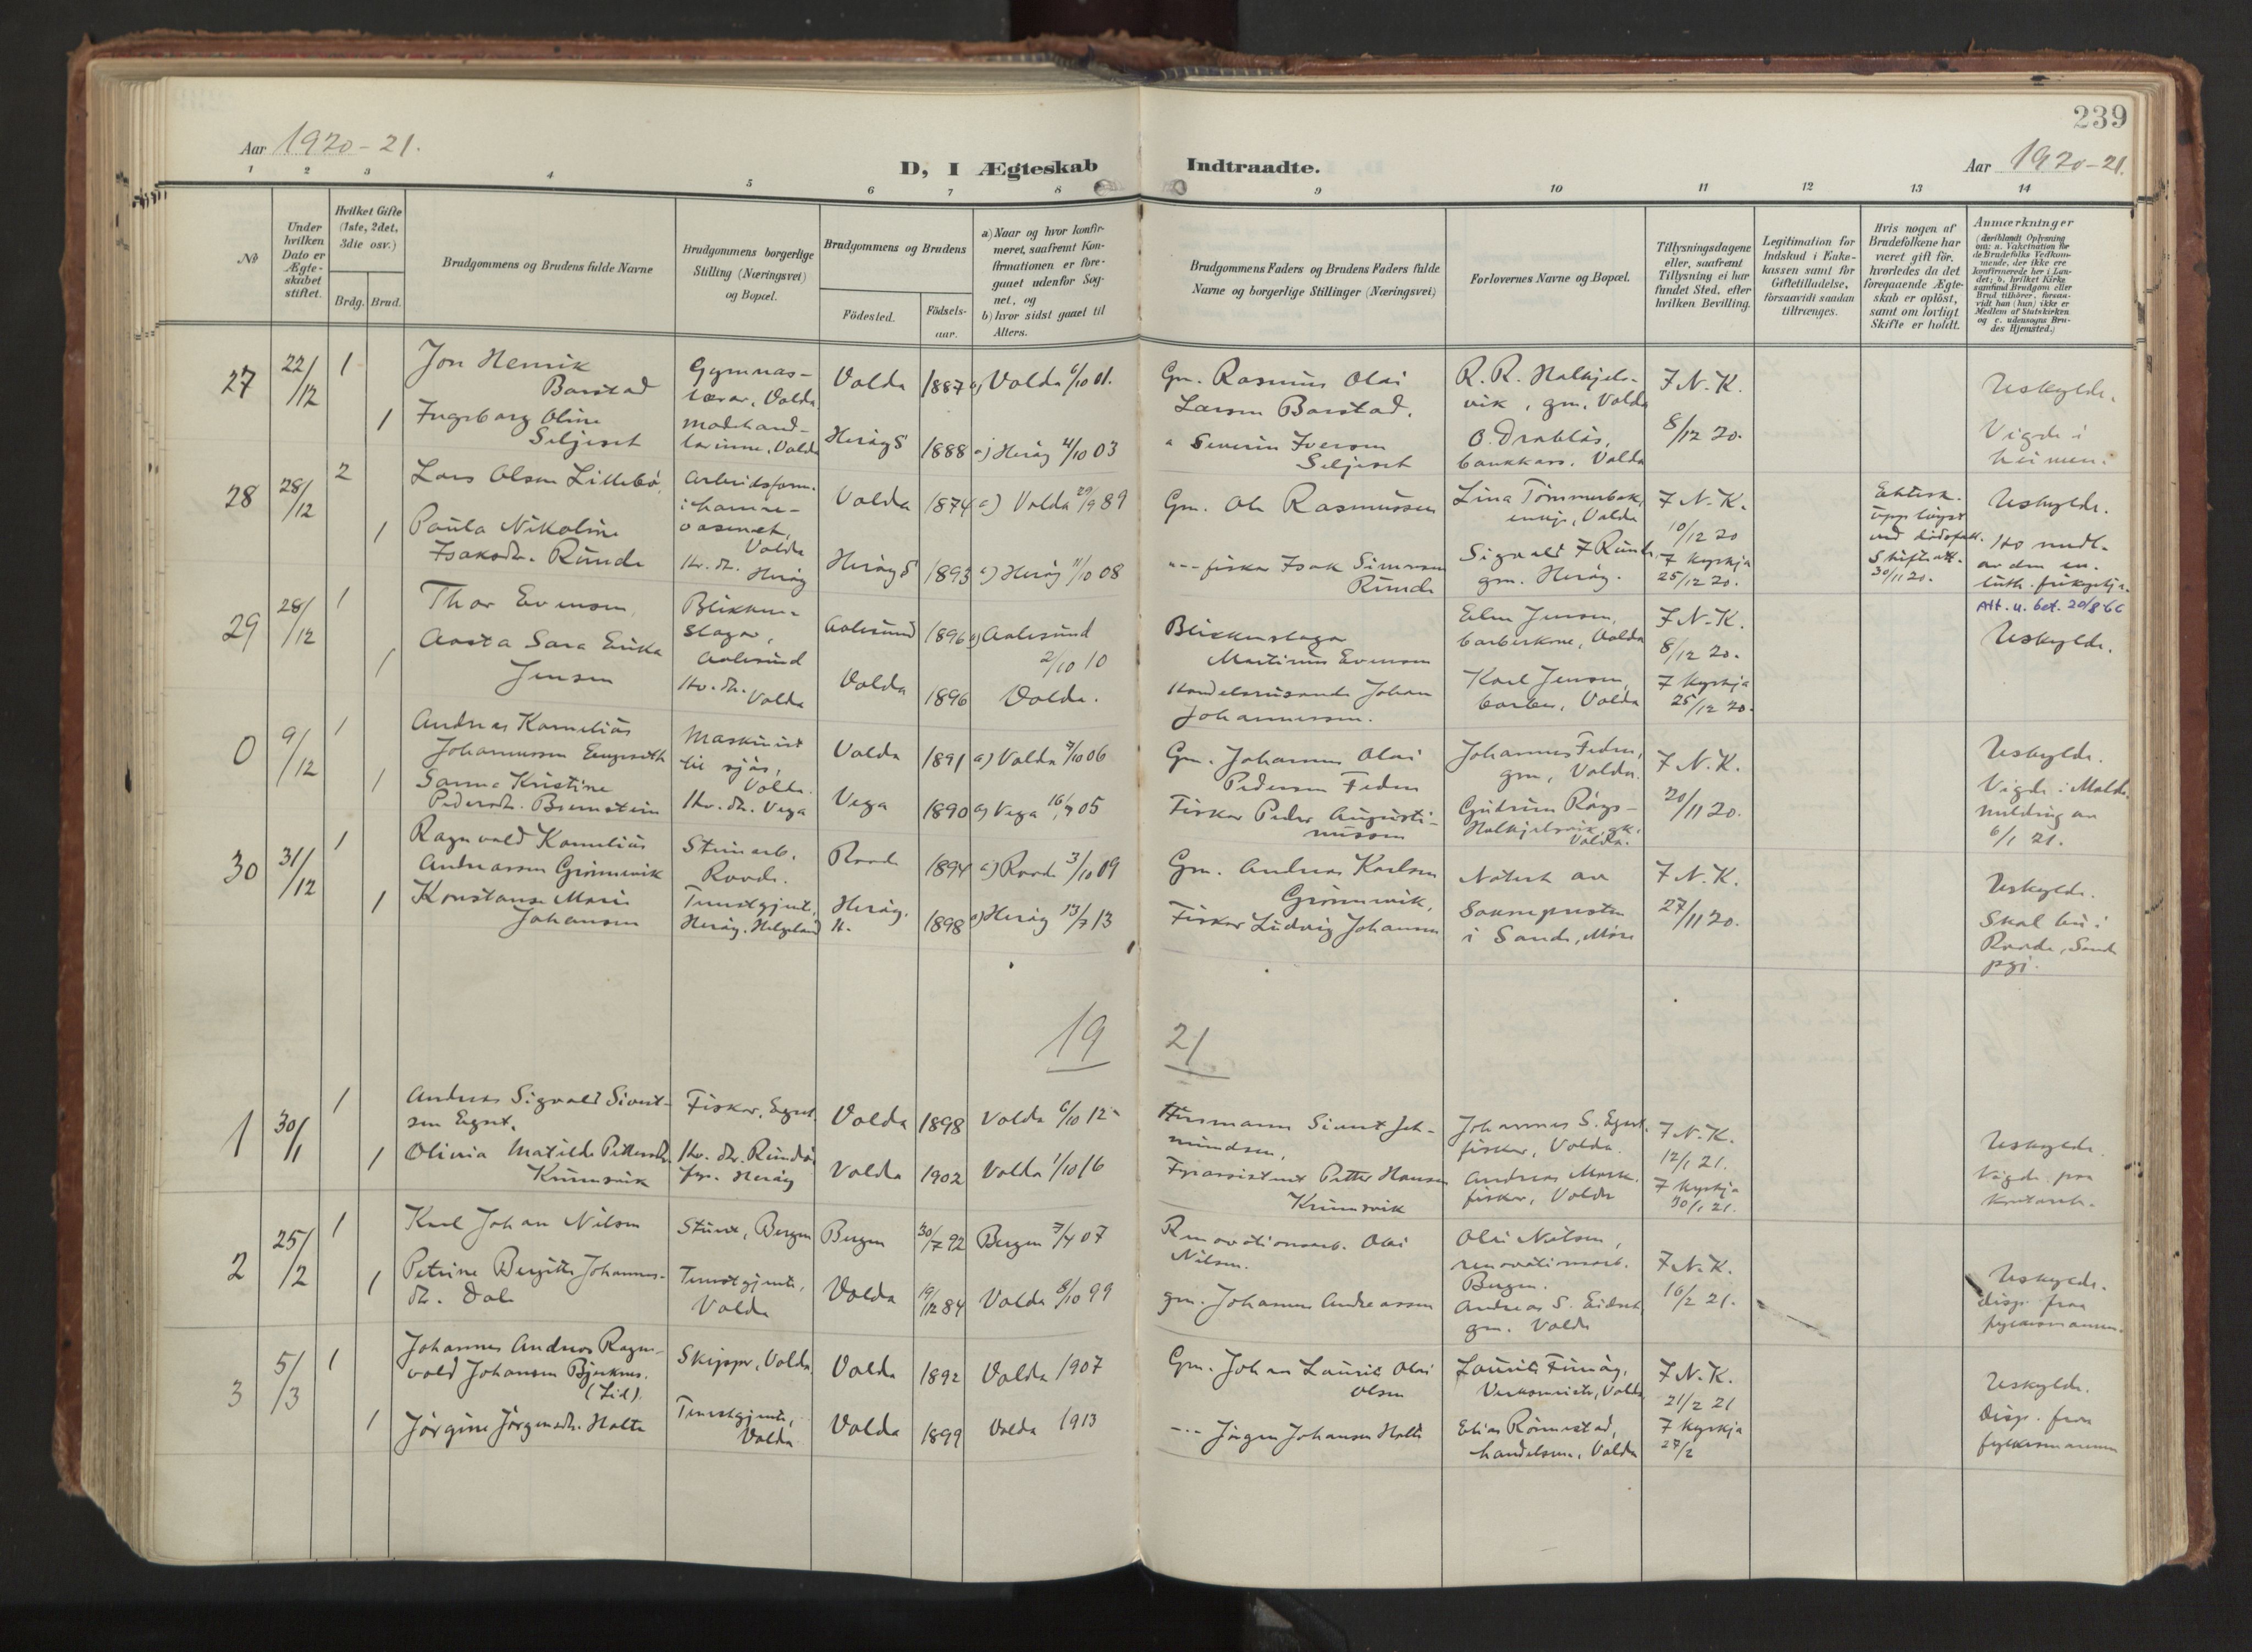 239
Aar 1920-21.
Aar 1920-21.
D, I Ægteskab Indtraadte.
1 2 3 4 5 6 7 8 9 10 11 12 13 14
No
Under hvilken Dato er Ægteskabet stiftet.
Hvilket Gifte (1ste, 2det, 3die osv.)
Brdg. Brud.
Brudgommens og Brudens fulde Navne
Brudgommens borgerlige Stilling (Næringsvei) og Bopæl.
Brudgommens og Brudens
Födested.
Födsels-aar.
a) Naar og hvor konfirmeret, saafremt Konfirmationen er foregaaet udenfor Sognet, og
b) hvor sidst gaaet til Alters.
Brudgommens Faders og Brudens Faders fulde Navne og borgerlige Stillinger (Næringsvei)
Forlovernes Navne og Bopæl.
Tillysningsdagene eller, saafremt Tillysning ei har fundet Sted, efter hvilken Bevilling.
Legitimation for Indskud i Enkekassen samt for Giftetilladelse, forsaavidt saadan tiltrænges.
Hvis nogen af Brudefolkene har været gift för, hvorledes da det foregaaende Ægteskab er oplöst, samt om lovligt Skifte er holdt.
Anmærkninger
(deriblandt Oplysning om: a. Vakcination for de Brudefolks Vedkommende, der ikke ere konfirmerede her i Landet; b. hvilket Kirkesamfund Brudgom eller Brud tilhörer, forsaavidt han (hun) ikke er Medlem af Statskirken og c. udensogns Brudes Hjemsted.)
27 22/12 1 Jon Henrik Barstad Gymnas-lærar, Volda Volda 1887 a) Volda 6/10 01. Gm. Rasmus Olai Larsen Barstad. R. R. Halkjels-vik, gm. Volda F. N. K. 8/12 20. Uskylde. Vigde i heimen.
1 Ingeborg Oline Seljeset motehand-larinne, Volda Heröy S 1888 a) Heröy 4/10 03 " Severin Iversen Seljeset O. Drabløs, bankkass. Volda
28 28/12 2 Lars Olsen Lillebö, Arbeidsform. i hamne-vesenet, Volda Volda 1874 a) Volda 29/9 89 Gm. Ole Rasmussen Lina Tømmerbak, enkje, Volda F. N. K. 10/12 20 Ektesk. uppløyst ved dødsfall. Skifteatt. 30/11 20. Uskylde.
1 Paula Nikoline Isaksdtr. Runde Hv. dtr. Heröy Heröy S 1893 a) Heröy 11/10 08 "-- fiskar Isak Simonsen Runde Sigvald I Runde, gm. Heröy. I kyrkja 25/12 20. Ho medl. av den ev. luth. frikyrkja.
Att. u. bet. 20/8 66
29 28/12 1 Thor Evensen, Blikken-slagar, Aalesund Aalesund 1896 a) Aalesund 2/10 10 Blikkenslagar Martinus Evensen Elen Jensen, barberkone, Volda F. N. K. 8/12 20. Uskylde.
1 Aasta Sara Erika Jensen Hv. dtr. Volda Volda 1896 Volda. Handelsreisande Johan Johannessen. Karl Jensen, barber, Volda I kyrkja 25/12 20.
0 9/12 1 Andreas Kornelius Johannessen Engeseth Maskinist til sjøs, Volda. Volda 1891 a) Volda 7/10 06 Gm. Johannes Olai Pedersen Feden Johannes Feden, gm, Volda. F. N. K. 20/11 20. Uskylde. Vigde i Molde, melding av 6/1 21.
1 Sanna Kristine Pedersdtr. Bremstein Hv. dtr. Vega Vega 1890 a) Vega 16/7 05 Fiskar Peder Augusti-nussen Gudrun Røys-Halkjelsvik, gk. Volda.
30 31/12 1 Ragnvald Kornelius Andreassen Grönnevik Steinarb. Rovde. Rovde 1894 a) Rovde 3/10 09 Gm. Andreas Karlsen Grönnevik, Notert av Soknepresten i Sande, Möre F. N. K. 27/11 20. Uskylde. Skal bu i Rovde, Sande pgj.
1 Konstanse Marie Johansen Tenestgjente, Heröy, Helgeland Heröy, H. 1898 a) Heröy 13/7 13 Fiskar Ludvig Johansen
19 21
1 30/1 1 Andreas Sigvald Sivert-sen Egset. Fiskar, Egset. Volda 1898 Volda 6/10 12 Husmann Sivert Joh-mundsen, Johannes S. Egset. fiskar, Volda. F. N. K. 12/1 21. Uskylde. Vigde paa
1 Olivia Matilde Pettersdtr. Krumsvik Hv. dtr. Rundö fyr. Heröy Volda 1902 Volda 1/10 16 Fyrassistent Petter Hansen Krumsvik Andreas Mork. fiskar, Volda I kyrkja 30/1 21.
2 25/2 1 Karl Johan Nilsen Stuert, Bergen Bergen 30/7 92 Bergen 7/4 07 Renovationsarb. Olai Nilsen. Olai Nilsen, renovationsarb. Bergen. F. N. K. 16/2 21. Uskylde. disp. fraa fylkesmannen.
1 Petrine Bergitte Johannes-dtr. Dale Tenestgjente, Volda Volda 19/12 84 Volda 8/10 99 gm. Johannes Andreassen Andreas S. Eidset, gm. Volda
3 5/3 1 Johannes Andreas Ragn-vald Johansen Bjerknes. (Lid). Skipper, Volda Volda 1892 Volda 1907 Gm. Johan Laurits Olai Olsen Laurits Furöy, Verksmeister, Volda F. N. K. 21/2 21 Uskylde. Disp. fraa fylkesmannen
1 Jörgine Jörgensdtr. Holte Tenestgjente, Volda Volda 1899 Volda 1913 --- Jörgen Johansen Holte Elias Rönnestad, handelsm., Volda I kyrkja 27/2